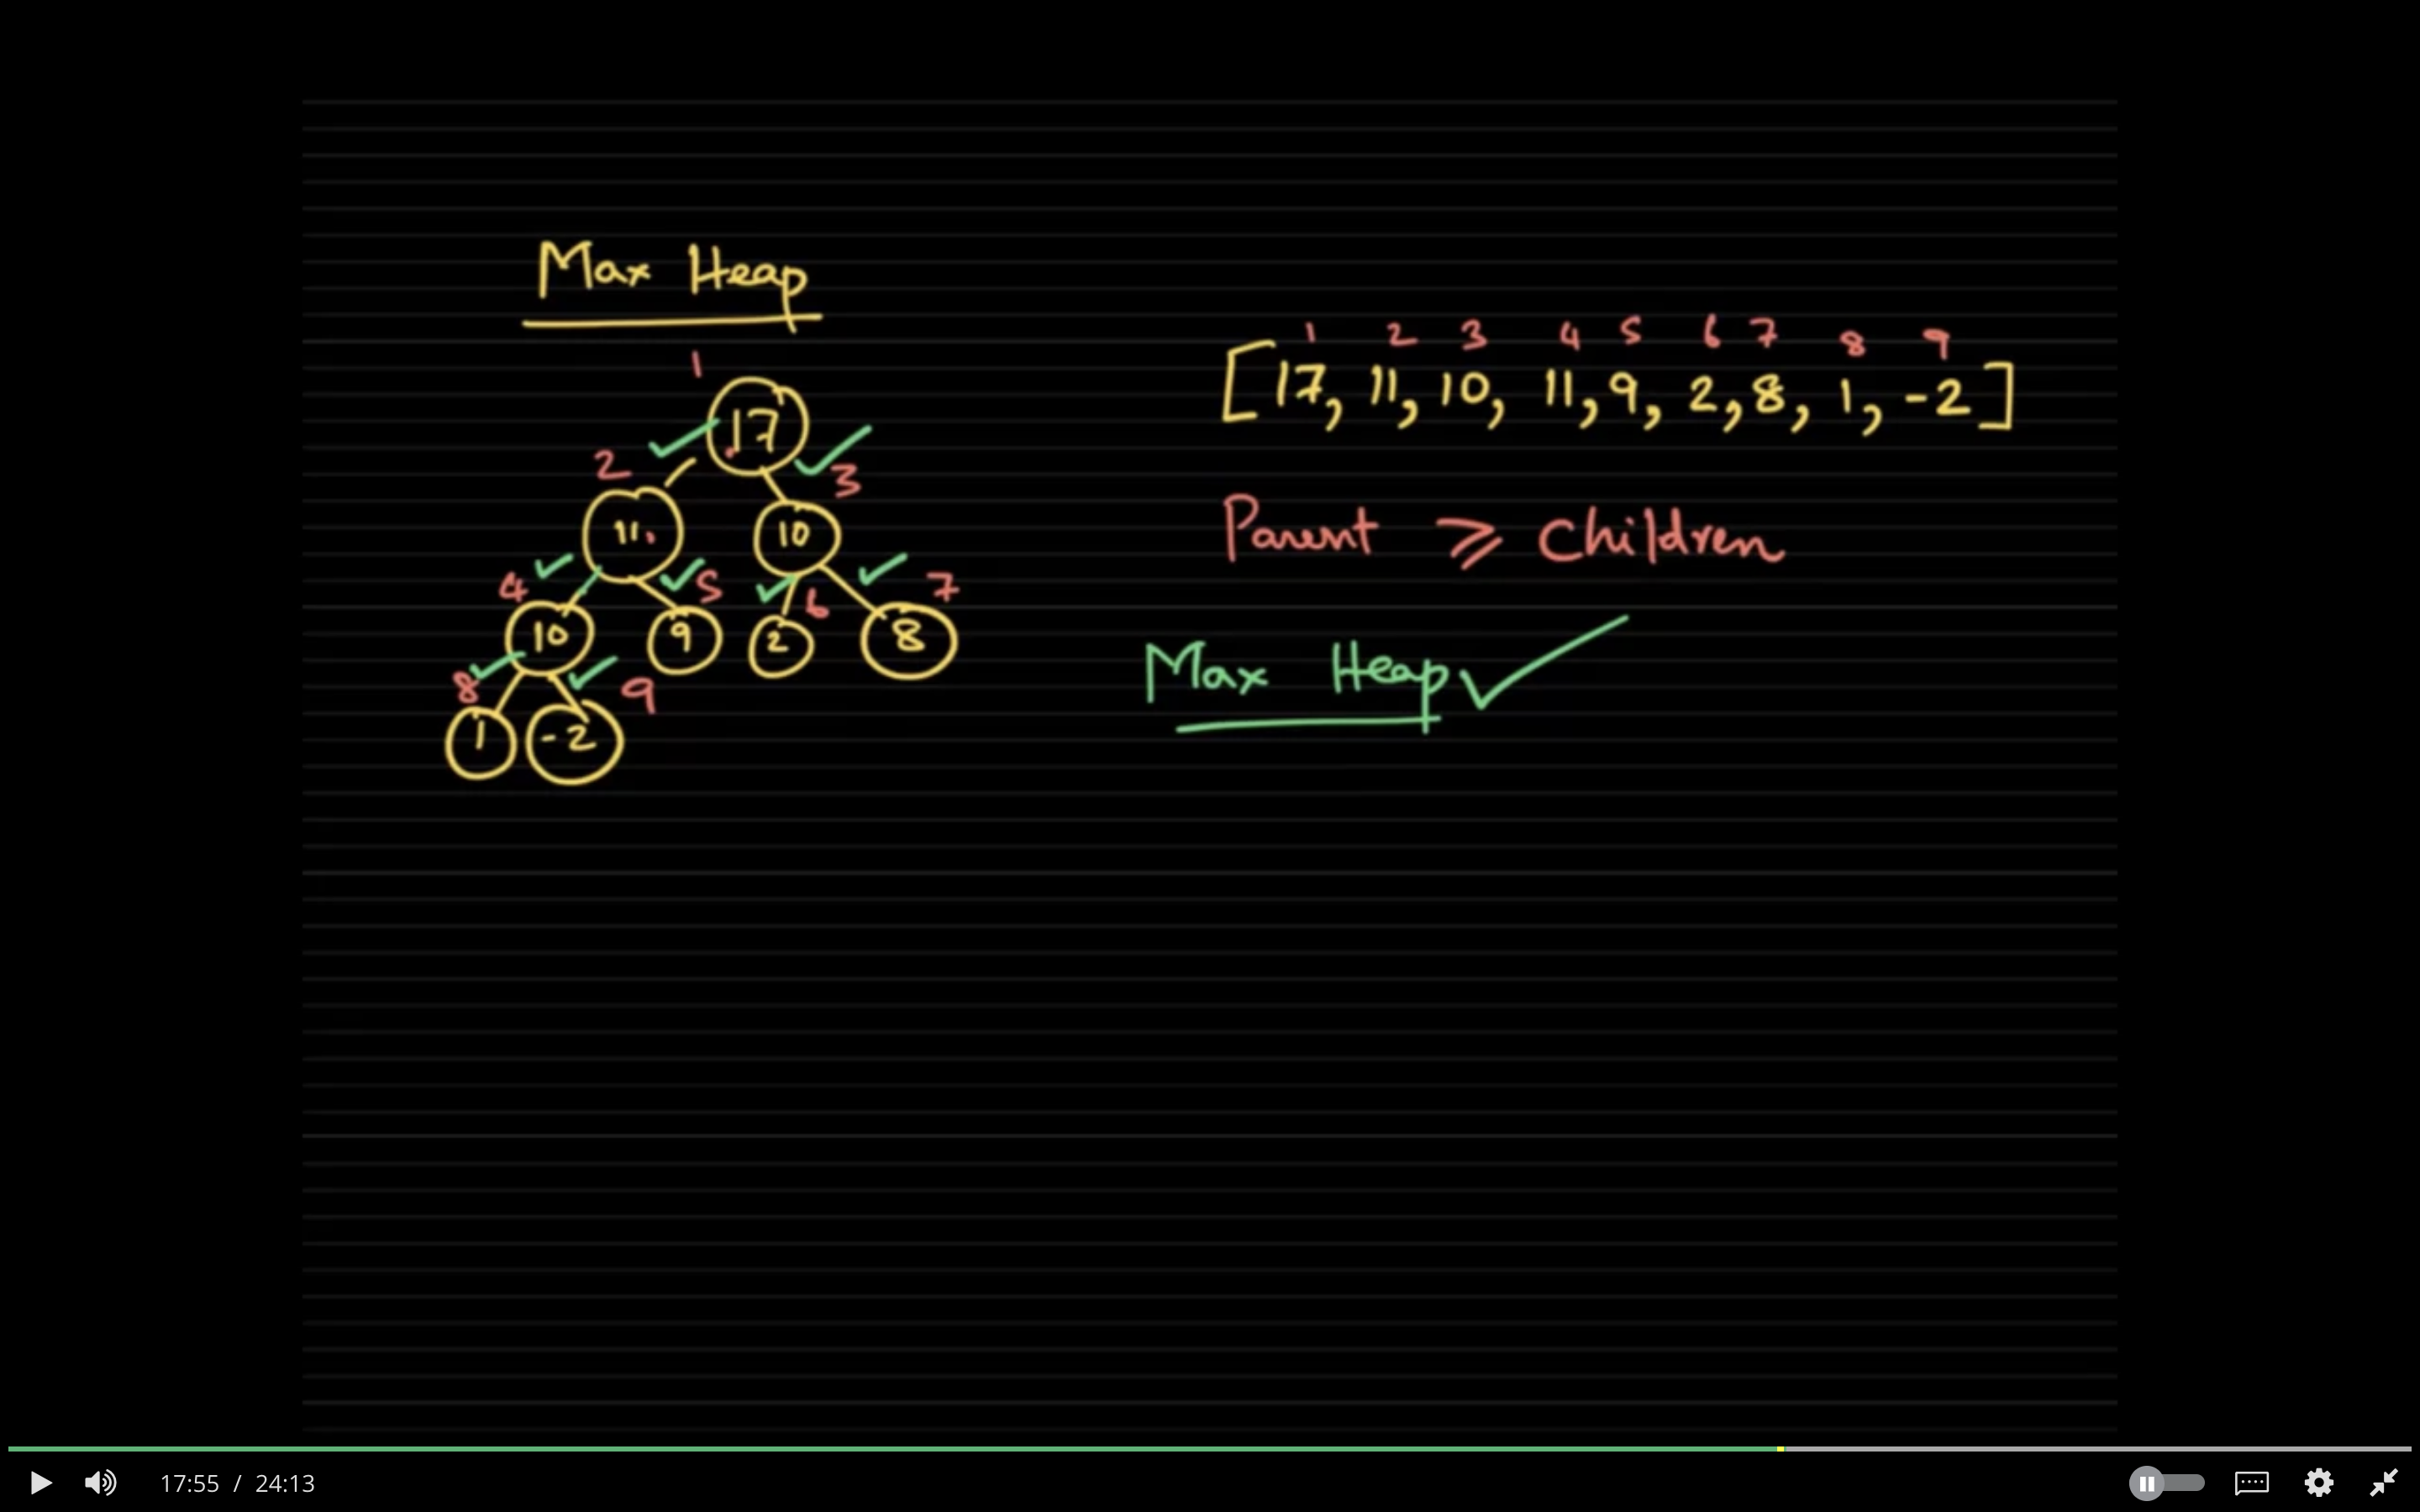 Max Heap
1
17
2 3
11 10
4 5 6 7
10 9 2 8
8 9
1 -2
1 2 3 4 5 6 7 8 9
[17, 11, 10, 11, 9, 2, 8, 1, -2]
Parent ⩾ Children
Max Heap ✓
17:55 / 24:13